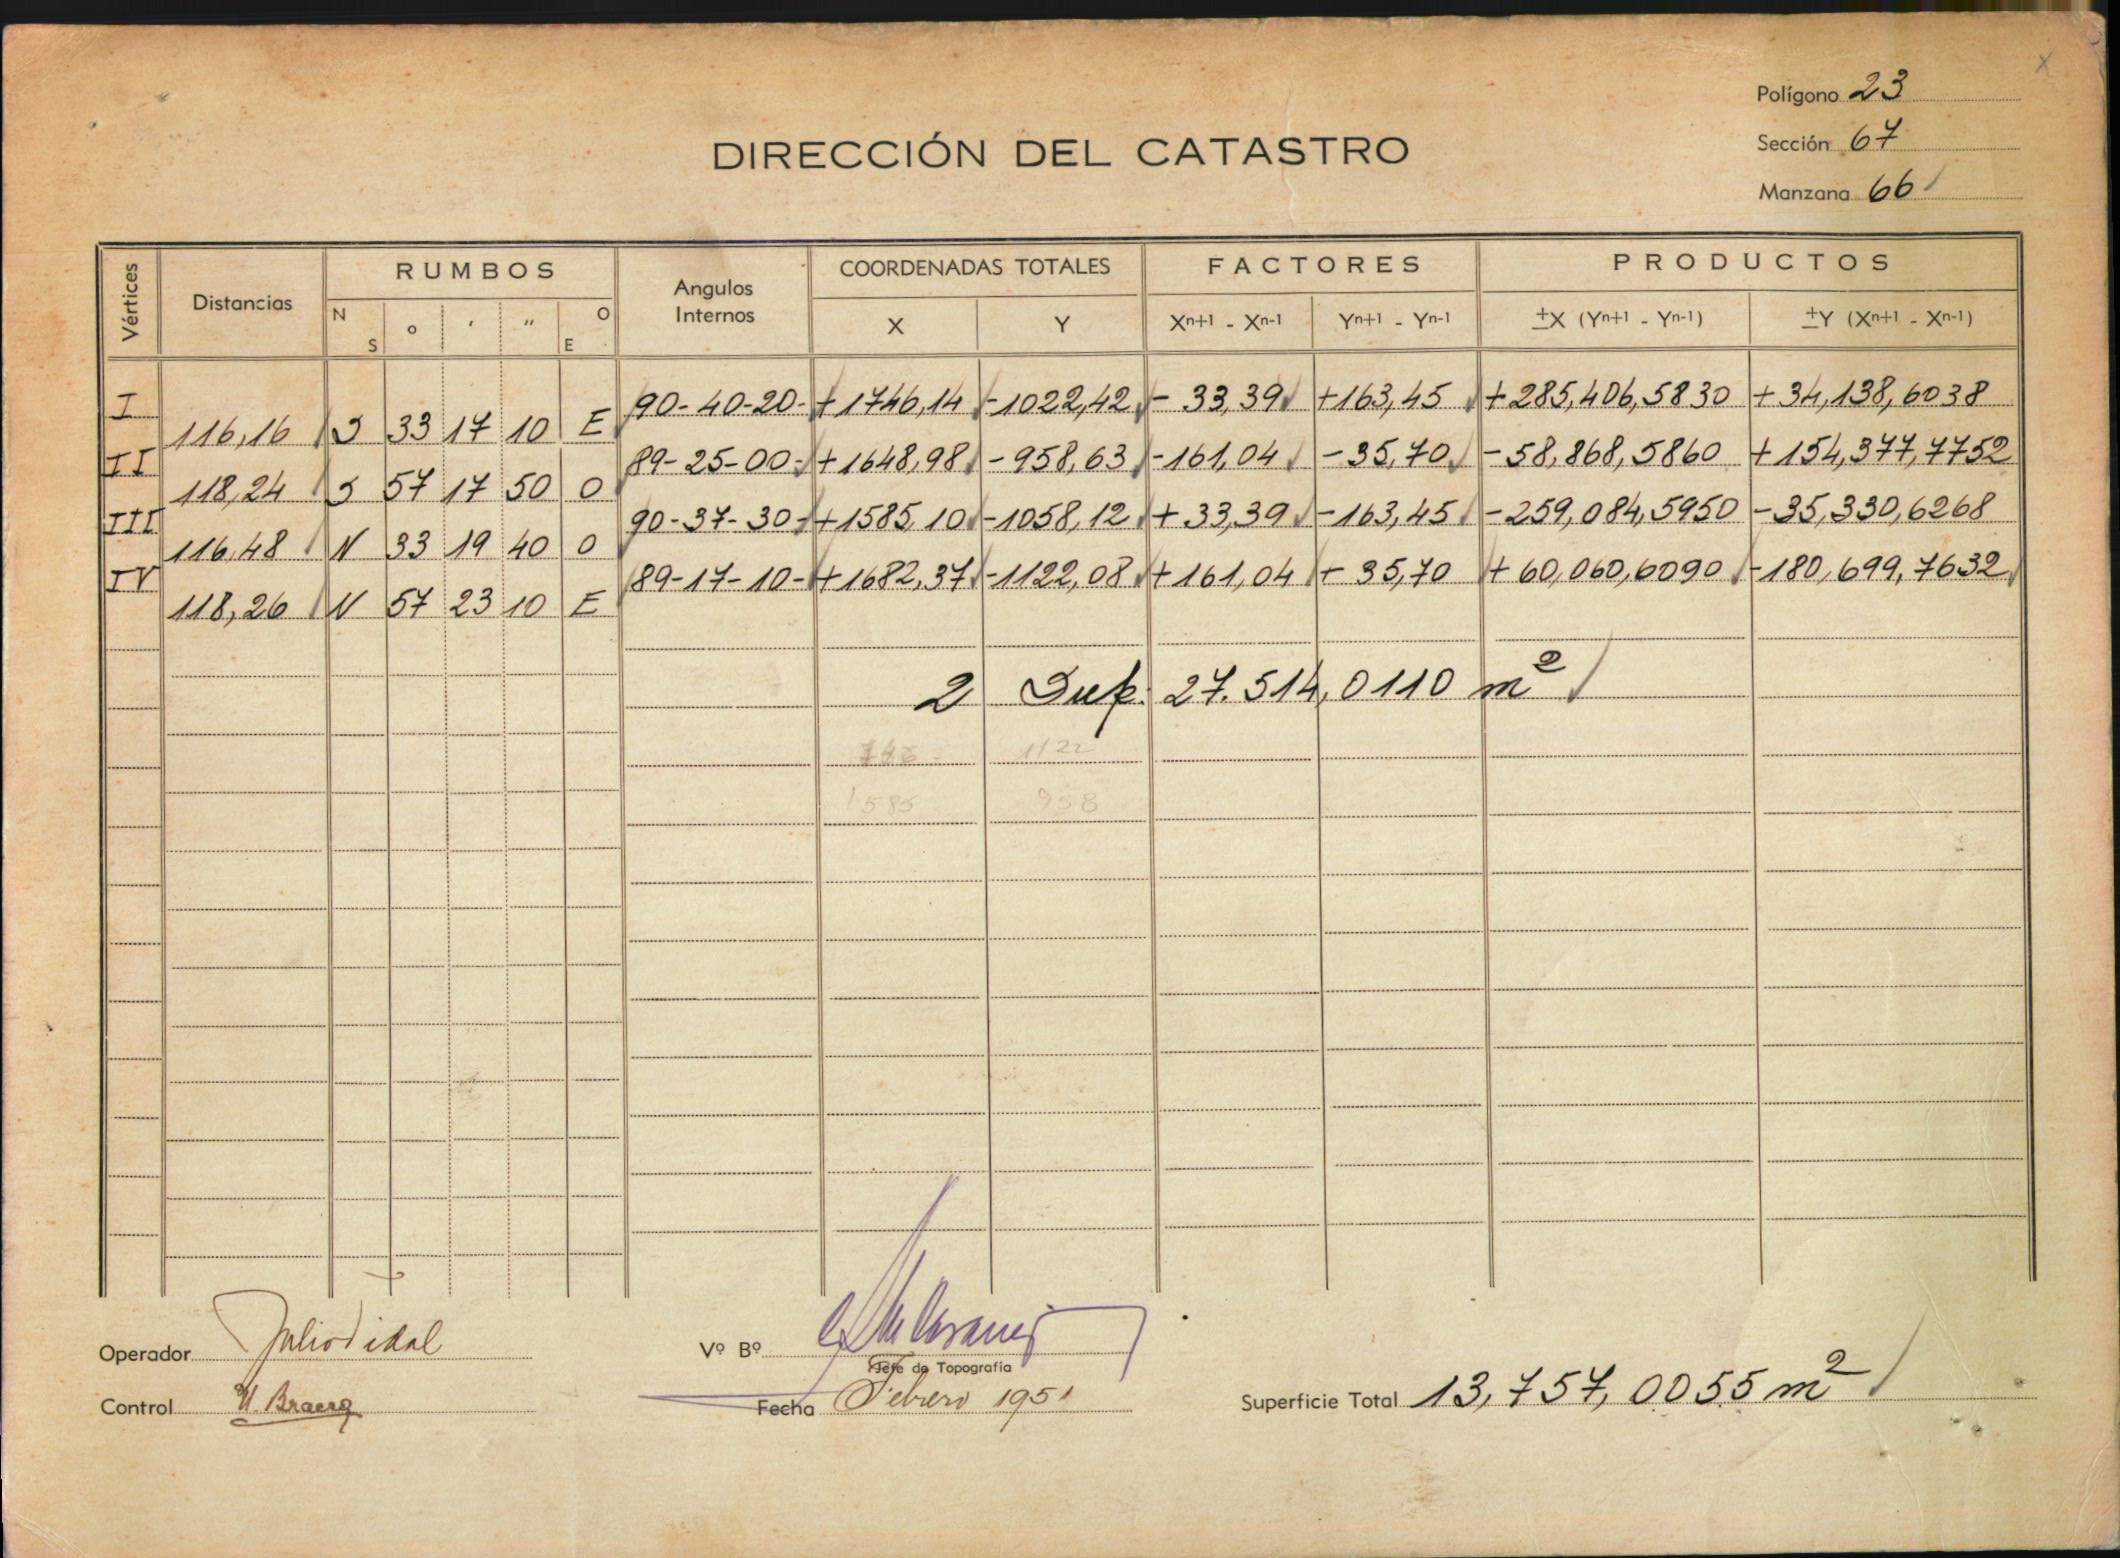 Polígono 23
DIRECCIÓN DEL CATASTRO
Sección 67
Manzana 66
Vértices Distancias RUMBOS Angulos Internos COORDENADAS TOTALES FACTORES PRODUCTOS
N S ° ' " O E X Y Xn+1 - Xn-1 Yn+1 - Yn-1 ±X (Yn+1 - Yn-1) ±Y (Xn+1 - Xn-1)
I 90-40-20- +1746,14 -1022,42 - 33,39 +163,45 +285,406,5830 +34,138,6038
116,16 S 33 17 10 E
II 89-25-00- +1648,98 -958,63 -161,04 -35,70 -58,868,5860 +154,377,7752
118,24 S 57 17 50 O
III 90-37-30- +1585,10 -1058,12 + 33,39 -163,45 -259,084,5950 -35,330,6268
116,48 N 33 19 40 O
IV 89-17-10- +1682,37 -1122,08 +161,04 + 35,70 + 60,060,6090 -180,699,7632
118,26 N 57 23 10 E
2 Sup. 27.514,0110 m²
1122
1585 958
Operador Julio Vidal Vº Bº
Jefe de Topografía
Control Fecha Febrero 1951 Superficie Total 13,757,0055 m²